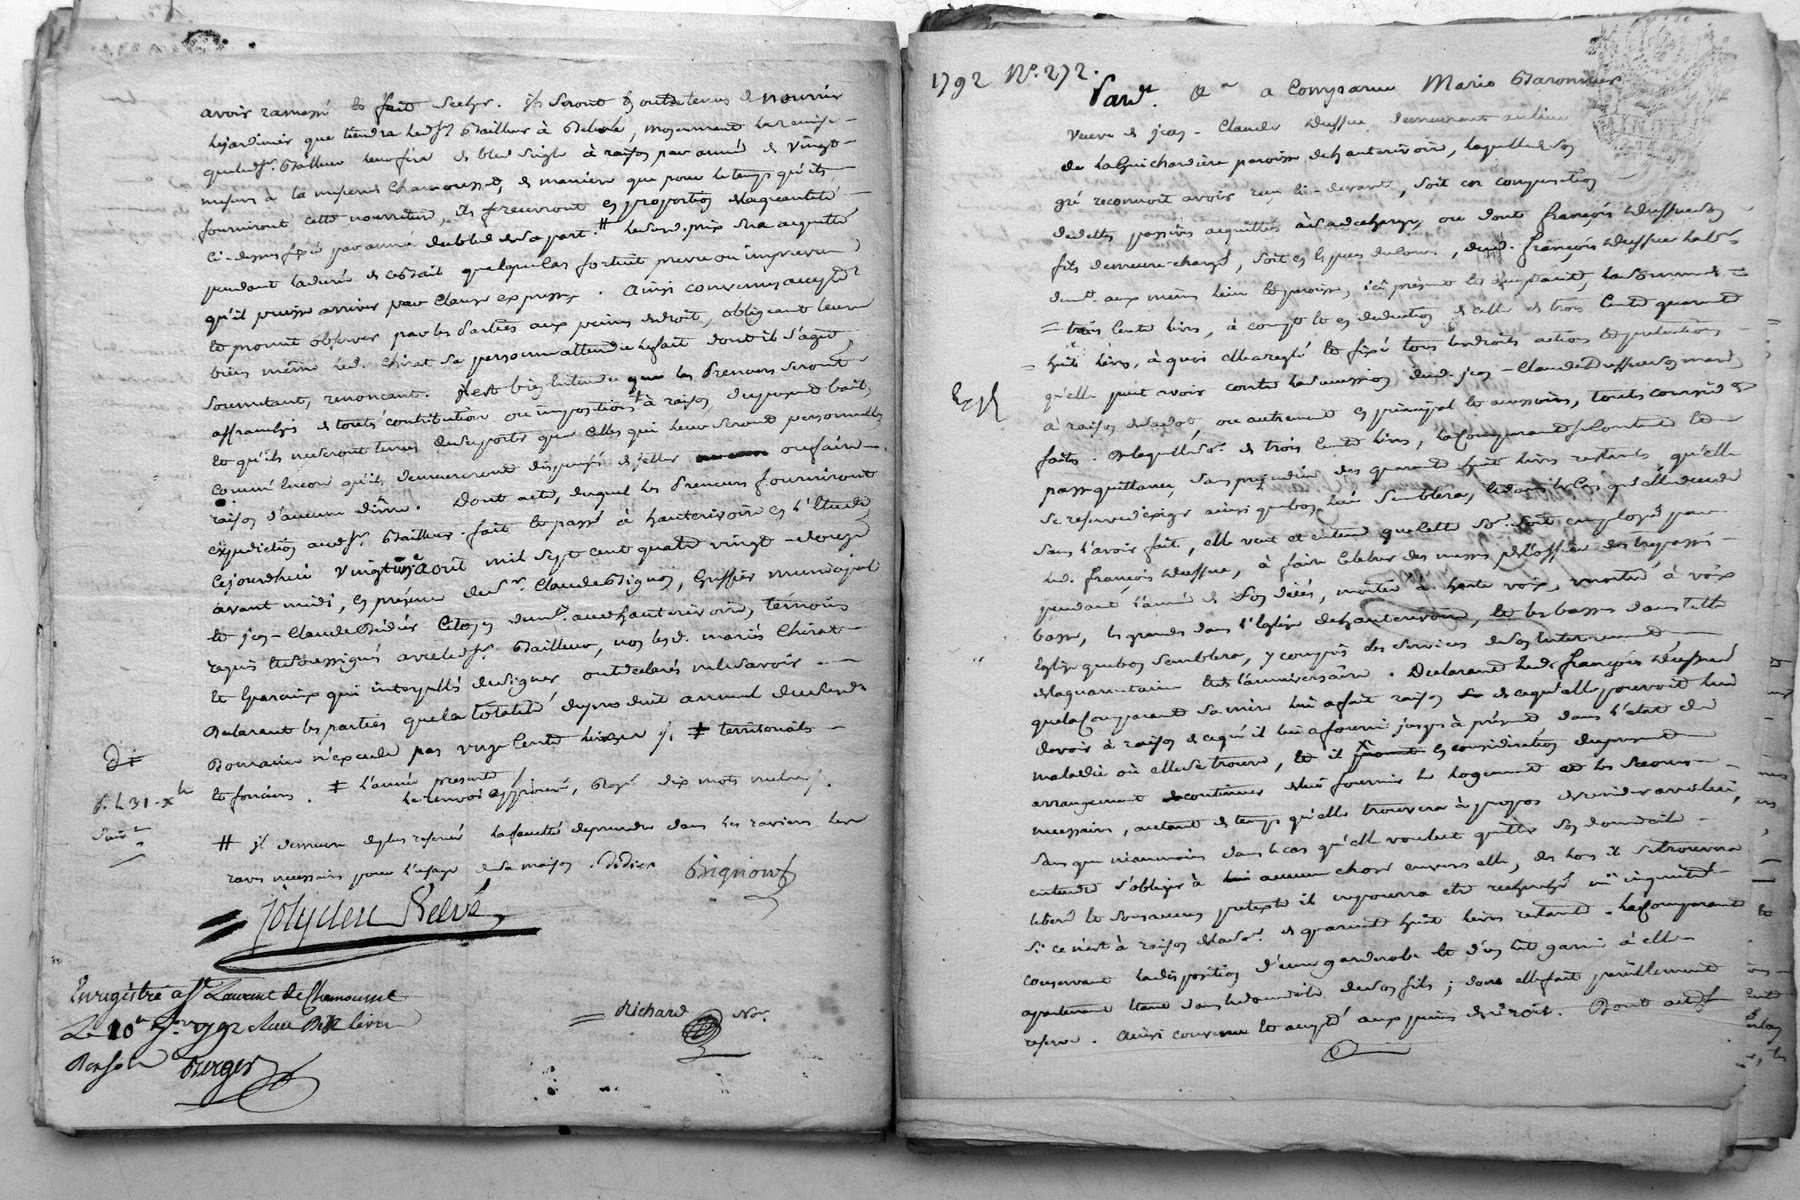 avoir ramassé et fait secher. ils seront en outre tenus de nourrir
le jardinier que tiendra led. Sr. Bailleux à                moyennant la remise
que led. Sr. Bailleux leur fera de bled seigle à raison par année de vingt
mesures à la mesure de Chamousset, de maniere que pour le temps qu'ils
fourniront cette nourriture, ils              en proportion de la quantité
ci-dessus fixée par année dud. bled de sa part. # led. prix sera acquitté
pendant la durée de ce bail quelque cas fortuit prevu ou imprevu
qu'il puisse arriver par clause expresse. Ainsi convenu accepté
et promit observer par les parties aux peines de droit, obligeant leurs
biens même led. Chirat sa personne attendu le fait dont il s'agit,
soumettant, renonçant. Il est bien entendu que les Preneurs seront
affranchis de toute contribution ou imposition à raison du present bail,
et qu'ils ne seront tenus de suporter que celles qui leur seront personnelles
comme encore qu'ils demeureront dispensés de                ou faire
raison d'aucune dime. Dont acte, duquel les Preneurs fourniront
expedition aud. Sr. Bailleux. fait et passé à hauterivoire en l'Etude
cejourdhui vingt                août mil sept cent quatre vingt douze
avant midi, en présence de Sr. Claude Bignon, Greffier municipal
et jean-Claude Didier Citoyen demt. aud. hauterivoire, temoins
requis et soussignés avec led. Sr. Bailleux, non les d. mariés Chirat
et                qui interpellés de signer ont declaré ne le savoir.
Declarant les parties que la totalité du produit annuel dud.
Domaine n'excede pas                cents livres        territoriale
et fonciere. ‡ l'année presente
le renvoi approuvé, Rayé dix mots nuls.
# il demeure de plus reservé la faculté de prendre dans les raviers les
raves necessaires pour l'usage de sa maison. Didier Bignon
Richard Nre.
Enregistré à St. Laurent de Chamousset
Le 10                1792 Reçu                livres
Berger
1792 N°. 272.
Pardt.                a Comparu Marie Baronnier
veuve de jean-Claude Dussue demeurant au lieu
de la Guichardiere paroisse de hauterivoire, laquelle de son
gré reconnoit avoir reçu ci-devant, soit en composition
de dettes passives acquittées à sa decharge, ou dont françois Dussue son
fils demeure chargé, soit en especes de cours, dud. françois Dussue
demt. aux mêmes lieu et paroisse, ici present et acceptant, la somme de
= trois cents livres, à compte et en deduction de celle de trois cents quarante
= huit livres, à quoi elle a reglé et fixé tous les droits actions et pretentions
qu'elle peut avoir contre la succession dud. jean-Claude Dussue son mari
à raison de sa dot, ou autrement en principal et accessoires, touts
faits. De laquelle so. de trois cents livres, la Comparante se contente et
passe quittance, sans prejudice des quarante huit livres restantes qu'elle
se reserve d'exiger ainsi que bon lui semblera, et dans le cas qu'elle decede
sans l'avoir fait, elle veut et entend que cette so. soit employée par
led. françois Dussue, à faire celebrer des messes de l'office des trepassés
pendant l'année de son décès, moitié à haute voix, moitié à voix
basse, les grandes dans l'Eglise de hauterivoire, et les basses dans telle
Eglise que bon semblera, y compris les services de son enterrement
de la quarantaine et de l'anniversaire. Declarant led. françois Dussue
que la Comparante sa mere lui a fait raison de ce qu'elle pouvoit lui
devoir à raison de ce qu'il lui a fourni jusqu'à présent dans l'etat de
maladie où elle se trouve, et il                en consideration du present
arrangement de continuer de lui fournir le logement et les secours
necessaires, autant de temps qu'elle trouvera à propos de resider avec lui,
sans que neanmoins dans le cas qu'elle voulut quitter son domicile
entende s'obliger à aucune chose envers elle, dès lors il se trouvera
liberé et sous aucun pretexte il ne pourra etre recherché ni inquieté
si ce n'est à raison de la so. de quarante huit livres restante. La Comparante
conservant la disposition d'une garderobe et d'un lit garni à elle
apartenant étant dans le domicile de son fils; dont elle fait pareillement
reserve. Ainsi convenu et accepté aux peines de droit. Dont acte